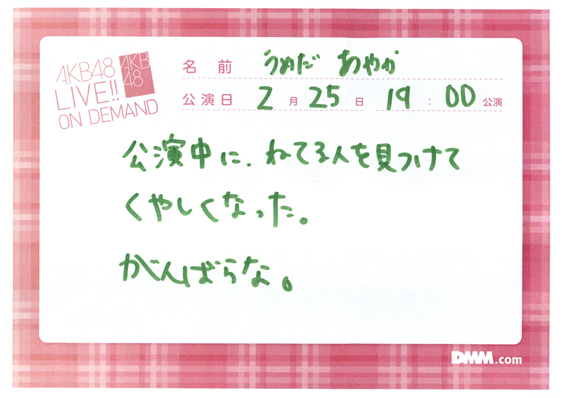 AKB48
LIVE!!
ON DEMAND
AKB
48
名 前 うめだ あやか
公演日 2月25日 19:00公演
公演中に、ねてる人を見つけて
くやしくなった。
がんばらな。
DMM.com